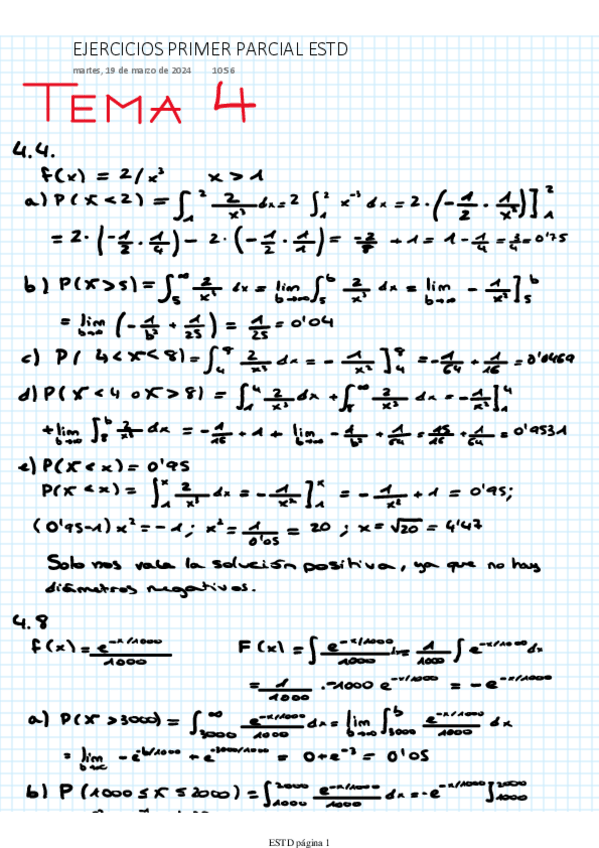 EJERCICIOS PRIMER PARCIAL ESTD
martes, 19 de marzo de 2024 10:56
TEMA 4
4.4.
f(x) = 2/x³ x > 1
a) P(X < 2) = ∫₁² 2/x³ dx = 2 ∫₁² x⁻³ dx = 2 · (-1/2 · 1/x²)]₁²
= 2 · (-1/2 · 1/4) - 2 · (-1/2 · 1/1) = -2/8 + 1 = 1 - 1/4 = 3/4 = 0'75
b) P(X > 5) = ∫₅^∞ 2/x³ dx = lim b→∞ ∫₅^b 2/x³ dx = lim b→∞ - 1/x²]₅^b
= lim b→∞ (-1/b² + 1/25) = 1/25 = 0'04
c) P( 4 < X < 8) = ∫₄⁸ 2/x³ dx = - 1/x²]₄⁸ = -1/64 + 1/16 = 0'0469
d) P(X < 4 o X > 8) = ∫₁⁴ 2/x³ dx + ∫₈^∞ 2/x³ dx = -1/x²]₁⁴
+ lim b→∞ ∫₈^b 2/x³ dx = -1/16 + 1 + lim b→∞ -1/b² + 1/64 = 15/16 + 1/64 = 0'9531
e) P(X < x) = 0'95
P(X < x) = ∫₁^x 2/x³ dx = -1/x²]₁^x = -1/x² + 1 = 0'95;
(0'95-1) x² = -1; x² = 1/0'05 = 20 ; x = √20 = 4'47
Solo nos vale la solución positiva, ya que no hay
diámetros negativos.
4.8
f(x) = e^(-x/1000)/1000 F(x) = ∫ e^(-x/1000)/1000 dx = 1/1000 ∫ e^(-x/1000) dx
= 1/1000 · -1000 e^(-x/1000) = -e^(-x/1000)
a) P(X > 3000) = ∫₃₀₀₀^∞ e^(-x/1000)/1000 dx = lim b→∞ ∫₃₀₀₀^b e^(-x/1000)/1000 dx
= lim b→∞ -e^(-b/1000) + e^(-3000/1000) = 0 + e⁻³ = 0'05
b) P (1000 ≤ X ≤ 2000) = ∫₁₀₀₀²⁰⁰⁰ e^(-x/1000)/1000 dx = -e^(-x/1000)]₁₀₀₀²⁰⁰⁰
ESTD página 1